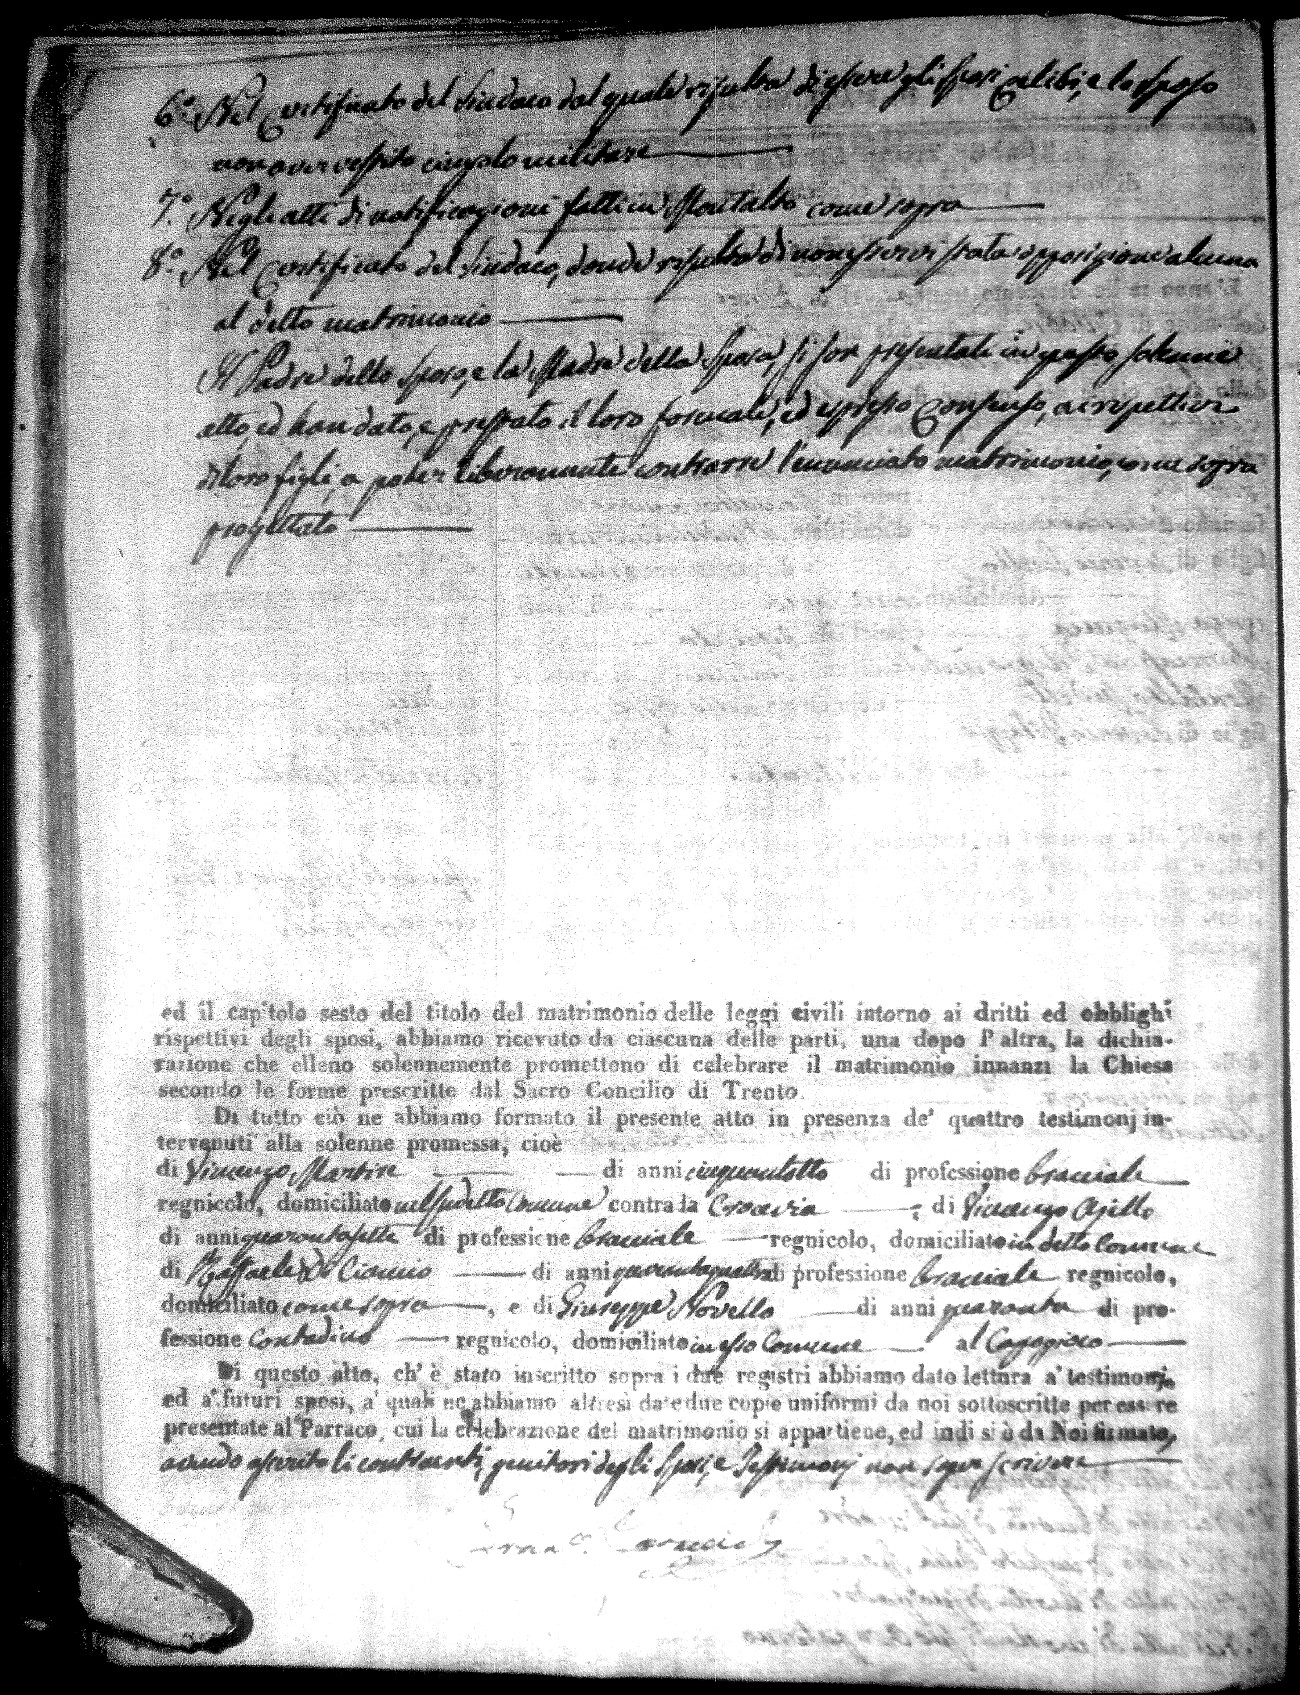 6.° Nel Certificato del Sindaco dal quale risulta di essere gli sposi celibi, e lo sposo
non aver vestito cingolo militare
7.° Negli atti di notificazioni fatti in Montalto come sopra
8.° Nel Certificato del Sindaco, donde risulta di non esservi stata opposizione alcuna
al detto matrimonio
Il Padre dello sposo, e la Madre della sposa, si son presentati in questo solenne
atto, ed han dato, e prestato il loro formale, ed espresso consenso, ai rispettivi
di loro figli, a poter liberamente contrarre l'enunciato matrimonio, come sopra
progettato
ed il capitolo sesto del titolo del matrimonio delle leggi civili intorno ai dritti ed obblighi
rispettivi degli sposi, abbiamo ricevuto da ciascuna delle parti, una dopo l'altra, la dichia-
razione che elleno solennemente promettono di celebrare il matrimonio innanzi la Chiesa
secondo le forme prescritte dal Sacro Concilio di Trento.
Di tutto ciò ne abbiamo formato il presente atto in presenza de' quattro testimonj in-
tervenuti alla solenne promessa, cioè
di Vincenzo Martire di anni cinquantotto di professione bracciale
regnicolo, domiciliato nel sudetto Comune contrada ; di Vincenzo
di anni quarantasette di professione bracciale regnicolo, domiciliato in detto Comune
di Raffaele di anni quarantaquattro di professione bracciale regnicolo,
domiciliato come sopra , e di Giuseppe Novello di anni quaranta di pro-
fessione Contadino regnicolo, domiciliato in esso Comune al
Di questo atto, ch' è stato inscritto sopra i due registri abbiamo dato lettura a' testimonj,
ed a' futuri sposi, a' quali ne abbiamo altresì date due copie uniformi da noi sottoscritte per essere
presentate al Parraco, cui la celebrazione del matrimonio si appartiene, ed indi si è da Noi firmato,
avendo asserito li contraenti, genitori degli sposi, e Testimonj non saper scrivere